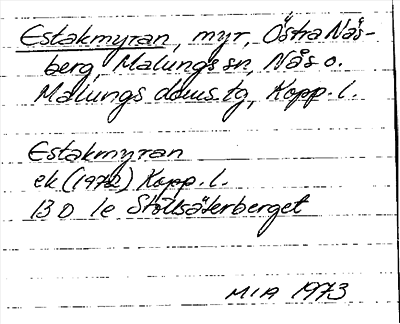 Estakmyran, myr, Östra Nås-
berg, Malungs sn, Nås o.
Malungs doms.tg, Kopp. l.
Estakmyran
ek (1972) Kopp. l.
13 D 1e Stöllsäterberget
MIA 1973